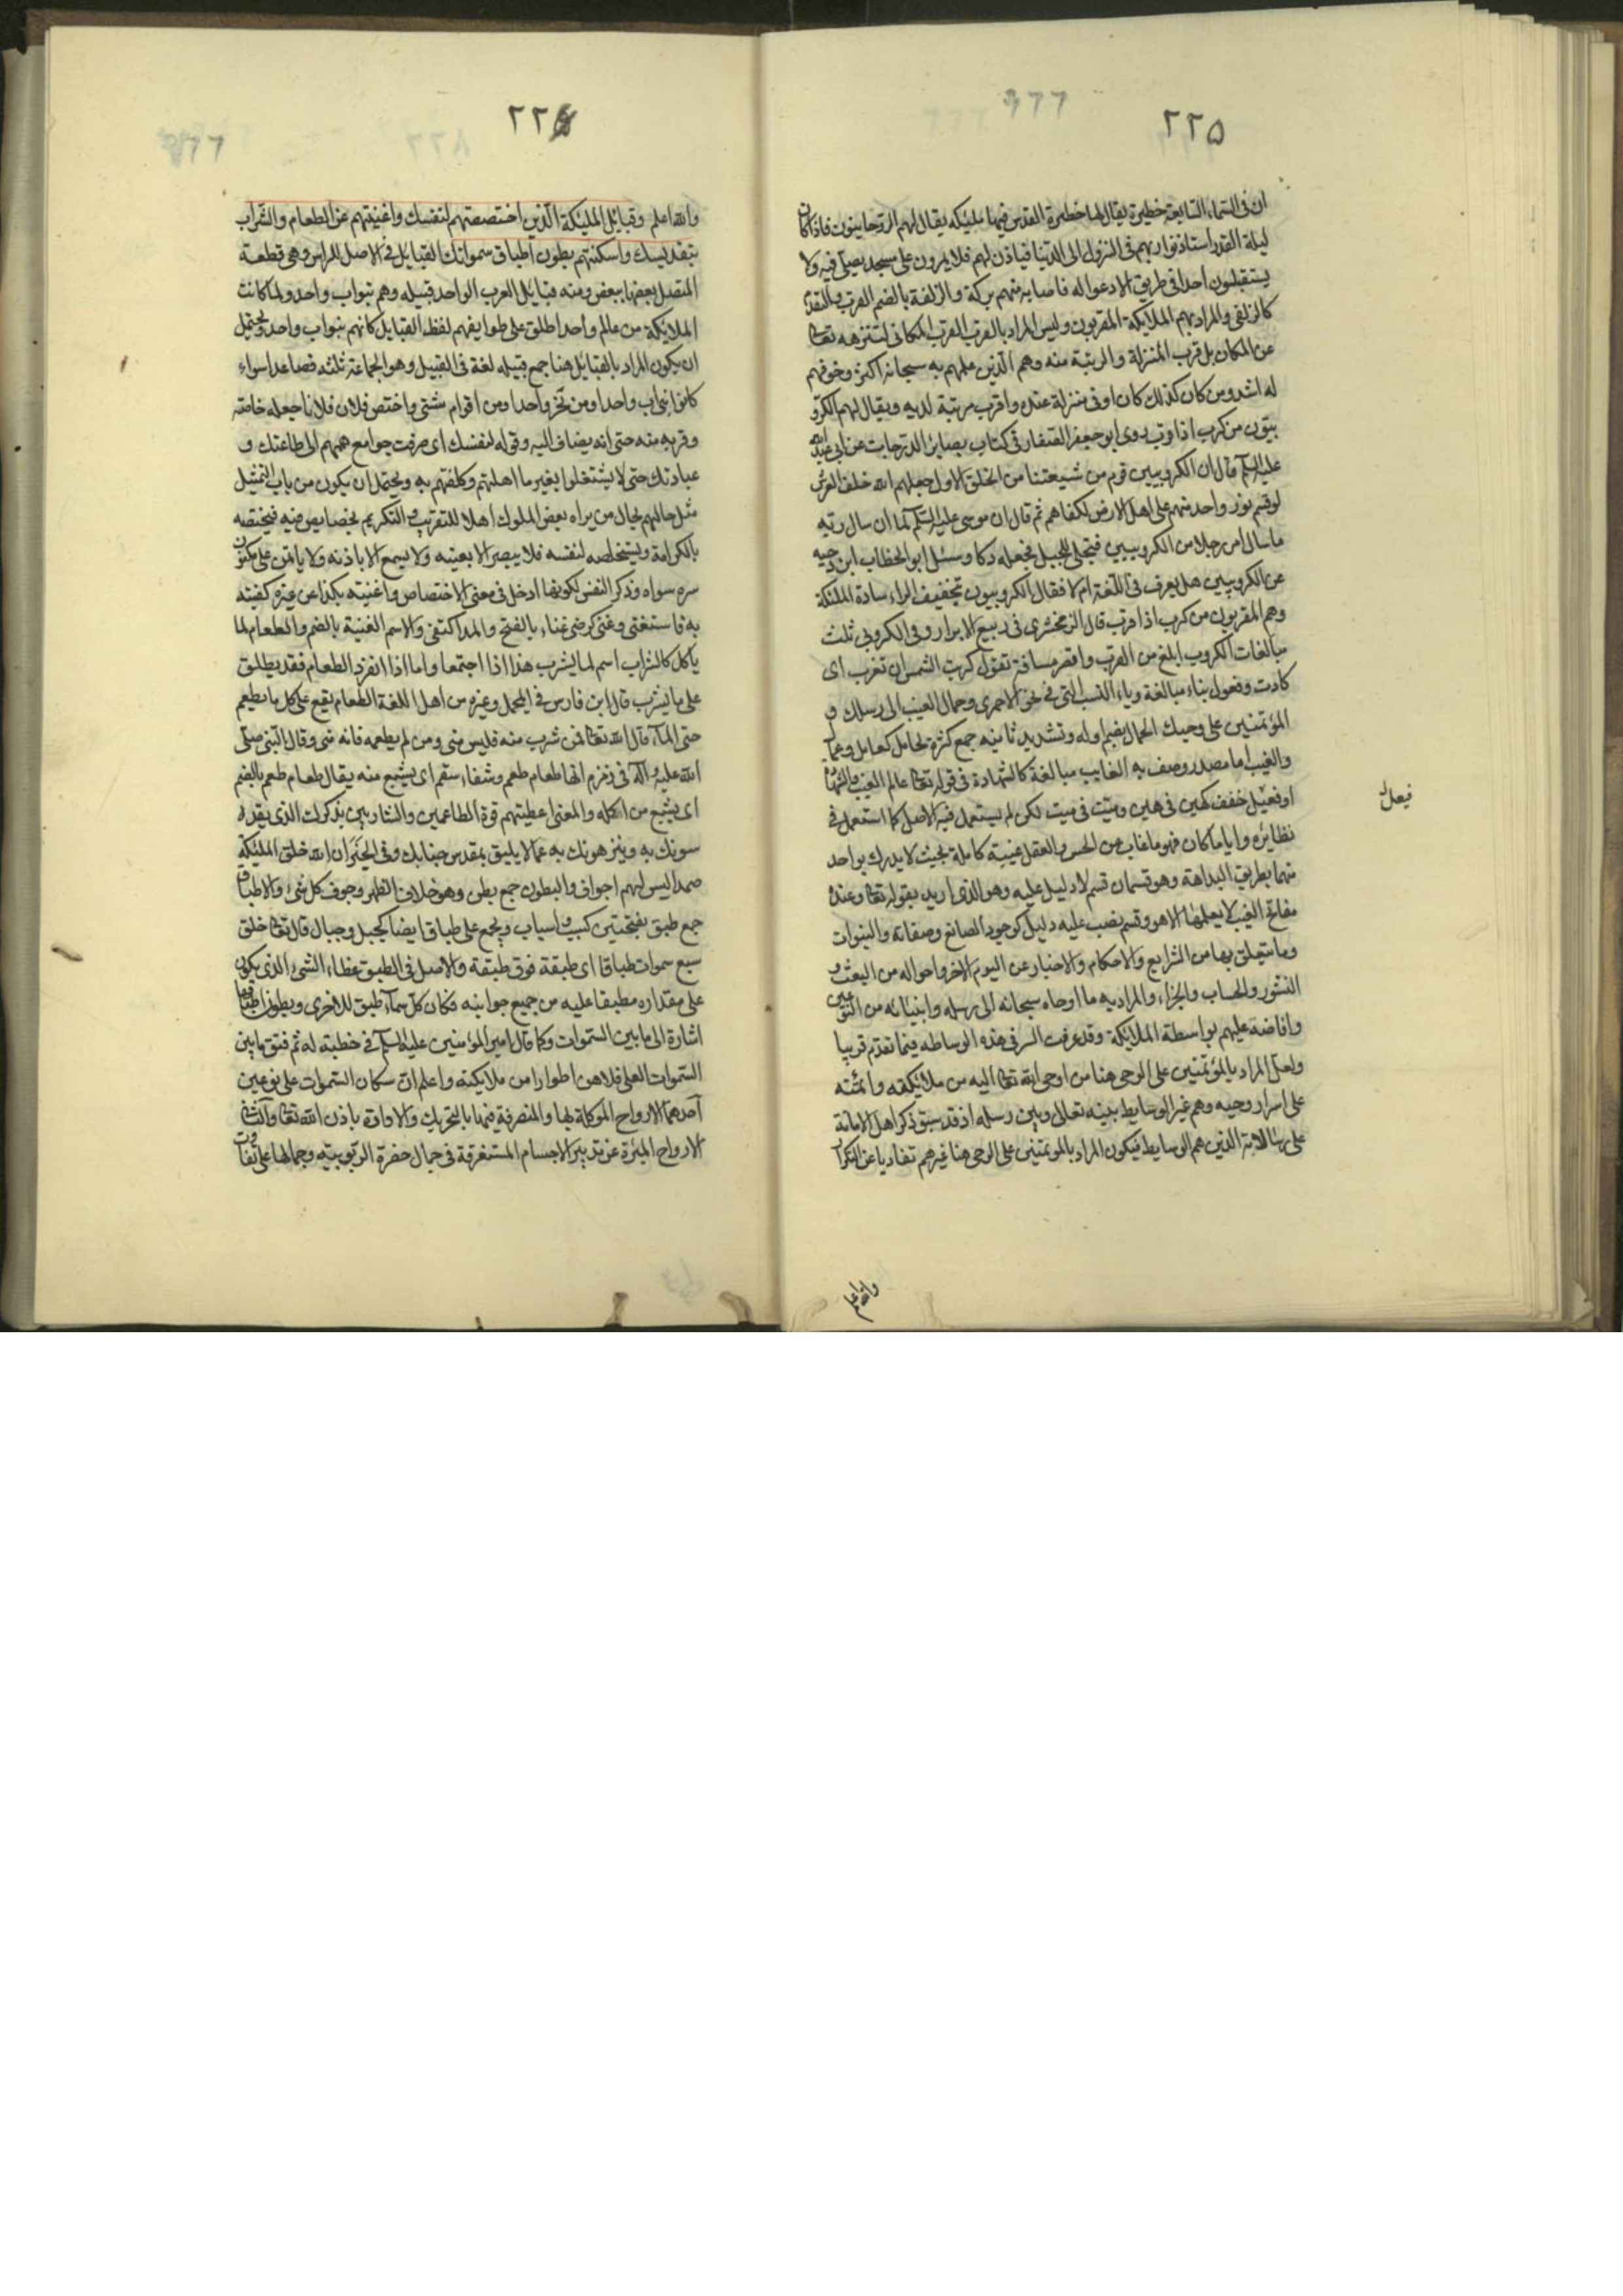 ٢٢٥
ان فى السماء السابعة حظيرة يقال لها حظيرة القدس فيها ملئكه يقال لهم الروحانيون فاذا كان
ليلة القدر استاذنوا ربهم فى النزول الى الدنيا فياذن لهم فلا يمرون على مسجد يصلى فيه ولا
يستقبلون احدا فى طريق الا دعوا له فاصابه منهم بركة والزلفة بالضم القرب والتقدم
كالزلفى والمراد بهم الملايكة المقربون وليس المراد بالقرب القرب المكانى لتنزهه تعالى
عن المكان بل قرب المنزلة والرتبة منه وهم الذين علمهم به سبحانه اكثر وخوفهم
له اشد ومن كان كذلك كان اوفى منزلة عنده واقرب مرتبة لديه ويقال لهم الكرو
بيون من كرب اذا قرب روى ابو جعفر الصفار فى كتاب بصاير الدرجات عن ابى عبد الله
عليه السلم قال ان الكروبيين قوم من شيعتنا من الخلق الاول جعلهم الله خلف العرش
لو قسم نور واحد منهم على اهل الارض لكفاهم ثم قال ان موسى عليه السلم لما ان سال ربه
ما سال امر رجلا من الكروبيين فتجلى للجبل فجعله دكا وسئل ابو الخطاب ابن دحيه
عن الكروبيين هل يعرف فى اللغة ام لا فقال الكروبيون بتخفيف الراء سادة الملئكة
وهم المقربون من كرب اذا قرب قال الزمخشرى فى ربيع الابرار وفى الكروبى ثلث
مبالغات الكروب ابلغ من القرب واقصر مسافة تقول كربت الشمس ان تغرب اى
كادت وفعول بناء مبالغة وياء النسب التى فى نحو الاحمرى وحمال الغيب الى رسلك و
المؤتمنين على وحيك الحمال بضم اوله وتشديد ثانيه جمع كثرة لحامل كعامل وعمال
والغيب اما مصدر وصف به الغايب مبالغة كالشهادة فى قوله تعالى عالم الغيب والشهادة
او فعيل خفف كهين فى هين وميت فى ميت لكن لم يستعمل فيه الاصل كما استعمل فى
فيعل
نظائره واياما كان فهو ما غاب عن الحس والعقل غيبة كاملة بحيث لا يدرك بواحد
منهما بطريق البداهة وهو قسمان قسم لا دليل عليه وهو الذى اريد بقوله تعالى وعنده
مفاتح الغيب لا يعلمها الا هو وقسم نصب عليه دليل كوجود الصانع وصفاته والنبوات
وما يتعلق بها من الشرايع والاحكام والاخبار عن اليوم الاخر واحواله من البعث و
النشور والحساب والجزاء والمراد به ما اوحاه سبحانه الى رسله وانبيائه من النوعين
وافاضه عليهم بواسطة الملائكة وقد عرفت السر فى هذه الوساطه فيما تقدم قريبا
ولعل المراد بالمؤتمنين على الوحى هنا من اوحى الله تعالى اليه من ملائكته وائمنه
على اسرار وحيه وهم غير الوسايط بينه تعالى وبين رسله اذ قد سبق ذكر اهل الامانة
على رسالاته الذين هم الوسايط فيكون المراد بالموتمنين على الوحى هنا غيرهم تفاديا عن التكرار
والله اعلم
٢٢٦
والله اعلم وقبائل الملئكة الذين اختصصتهم لنفسك واغنيتهم عن الطعام والشراب
بتقديسك واسكنتهم بطون اطباق سمواتك القبايل فى الاصل للراس وهى قطعه
المتصل بعضها ببعض ومنه قبائل العرب الواحد قبيله وهم بنو اب واحد ولما كانت
الملائكة من عالم واحد اطلق على طوايفهم لفظ القبايل كانهم بنو اب واحد ويحتمل
ان يكون المراد بالقبايل هنا جمع قبيله لغة فى القبيل وهو الجماعة ثلثه فصاعدا سواء
كانوا بنى اب واحد او من نجر واحد او من اقوام شتى واختص فلان فلانا جعله خاصته
وقربه منه حتى انه يضاف اليه وقوله لنفسك اى صرفت جوامع هممهم الى طاعتك و
عبادتك حتى لا يشتغلوا بغير ما اهلتهم وكلفتهم به ويحتمل ان يكون من باب التمثيل
مثل حالهم بحال من يراه بعض الملوك اهلا للتقريب والتكريم بخصايص فيه فيختصه
بالكرامة ويستخلصه لنفسه فلا يبصر الا بعينه ولا يسمع الا باذنه ولا ياتمن على مكنون
سره سواه وذكر النفس لكونها ادخل فى معنى الاختصاص واغنيته بكذا عن غيره كفيته
به فاستغنى وغنى كرضى غناء بالفتح والمد اكتفى والاسم الغنية بالضم والطعام لما
ياكل كالشراب اسم لما يشرب هذا اذا اجتمعا واما اذا انفرد الطعام فقد يطلق
على ما يشرب قال ابن فارس فى المجمل وغيره من اهل اللغة الطعام يقع على كل ما يطعم
حتى الماء قال الله تعالى فمن شرب منه فليس منى ومن لم يطعمه فانه منى وقال النبى صلى
الله عليه واله فى زمزم انها طعام طعم وشفاء سقم اى يشبع منه يقال طعام طعم بالضم
اى يشبع من اكله والمعنى اعطيتهم قوة الطاعمين والشاربين بذكرك الذى يقد
سونك به وينزهونك به عما لا يليق بمقدس جنابك وفى الخبر ان الله خلق الملئكة
صمدا ليس لهم اجواف والبطون جمع بطن وهو خلاف الظهر وجوف كل شئ والاطباق
جمع طبق بفتحتين كسبب واسباب ويجمع على طباق ايضا كجبل وجبال قال تعالى خلق
سبع سموات طباقا اى طبقة فوق طبقة والاصل فى الطبق غطاء الشئ الذى يكون
على مقداره مطبقا عليه من جميع جوانبه فكان كل سماء طبق للاخرى وبطون اطباقها
اشارة الى ما بين السموات وكما قال امير المؤمنين عليه السلم فى خطبته له ثم فتق ما بين
السموات العلى فملاهن اطوارا من ملايكته واعلم ان سكان السموات على نوعين
احدهما الارواح الموكلة بها والمتصرفة فيها بالتحريك والارادة باذن الله تعالى والثانى
الارواح المبرّة عن تدبير الاجسام المستغرقة فى جمال حضرة الربوبيته وجمالها على تفاوت